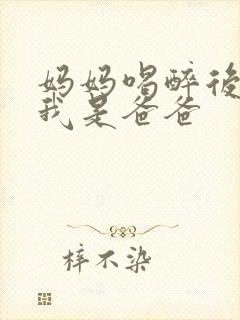 妈妈喝醉後
我是爸爸
梓不染